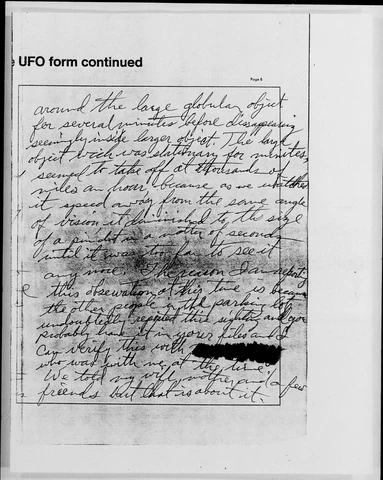 e UFO form continued
Page 6
around the large globular object
for several minutes before dissappearing
seemingly inside larger object. The large
object wich was stationary for minutes
seemed to take off at thousands of
miles an hour because as we watched
it speed away from the same angle
of vision it diminished to the size
of a pindot in a matter of seconds
until it was too far to see it
any more. The reason I am reporting
this observation at this time is because
the other people in the parking lot
undoubtedly reported this sighting and you
probably have it in your files and I
can verify this with
who was with me at the time.
We told my wife, mother and a few
friends but that is about it.